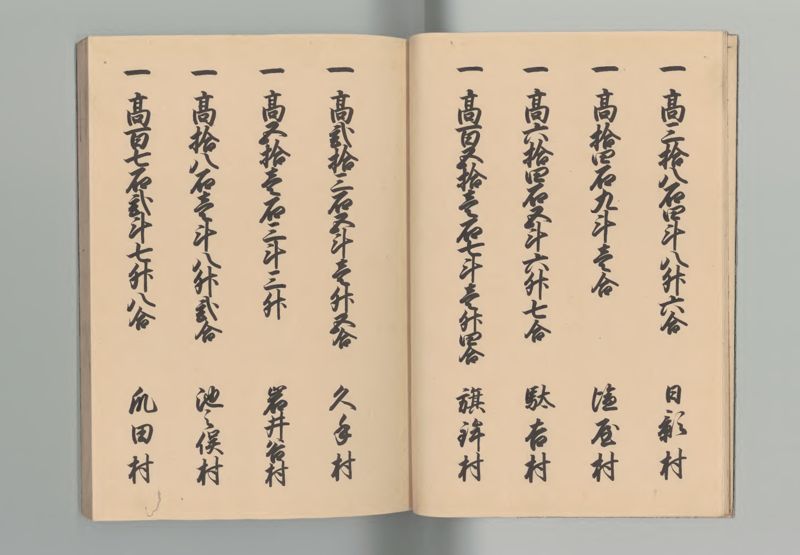 一 髙三拾八石四斗八升六合 日影村
一 髙拾四石九斗壱合 塩屋村
一 髙六拾四石五斗六升七合 駄吉村
一 髙百五拾壱石七斗壱升四合 旗鉾村
一 髙弐拾三石五斗壱升五合 久手村
一 髙五拾壱石三斗三升 岩井谷村
一 髙拾八石壱斗八升弐合 池之俣村
一 髙百七石弐斗七升八合 瓜田村